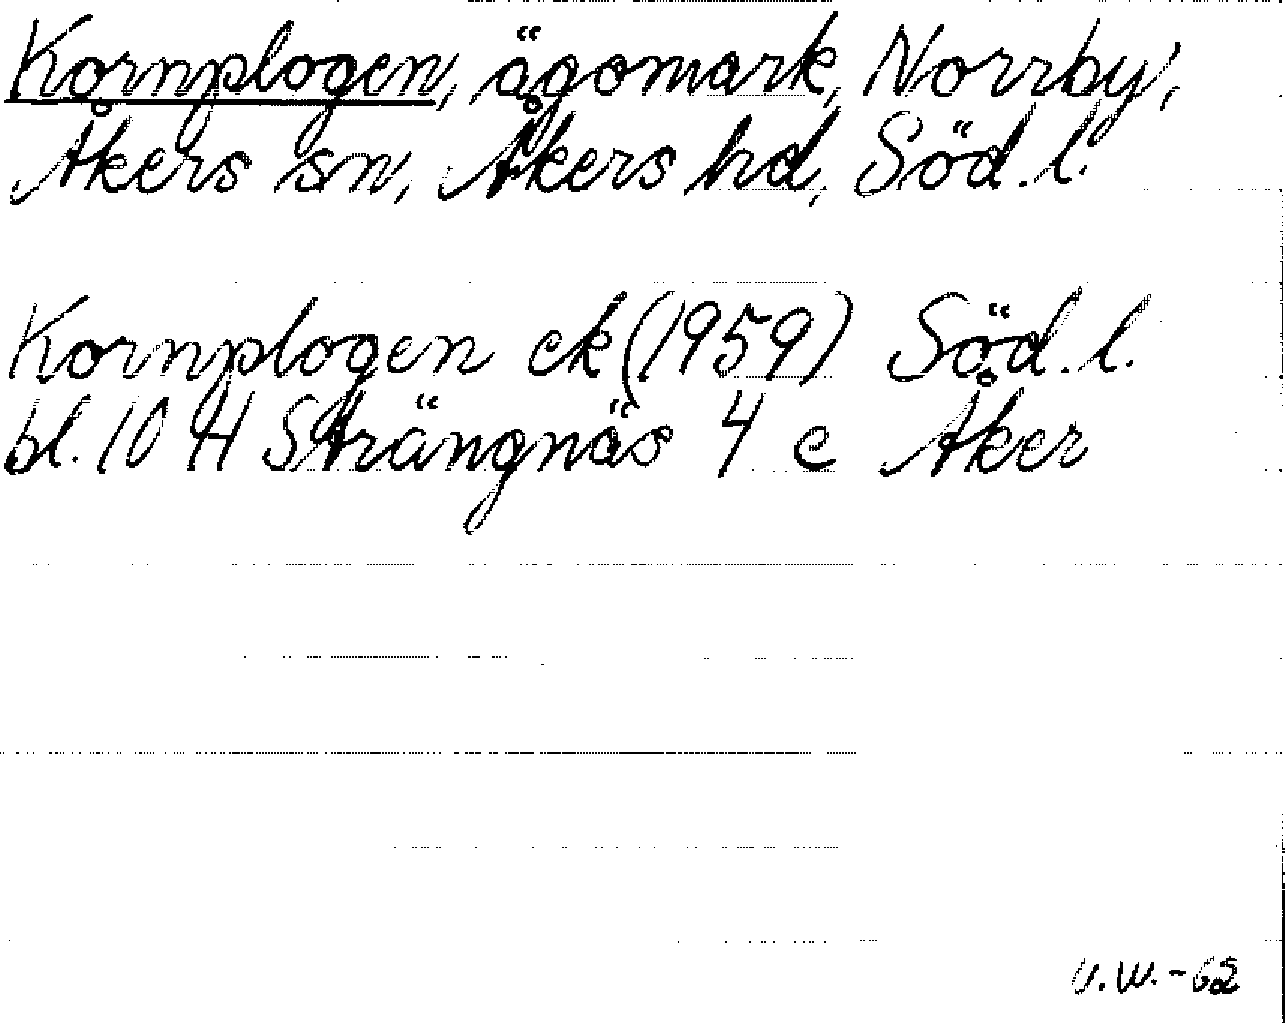 Kornplogen, ägomark, Norrby,
Åkers sn, Åkers hd, Söd. l.
Kornplogen ek (1959) Söd. l.
bl. 10 H Strängnäs 4 e Åker
U.W.-62